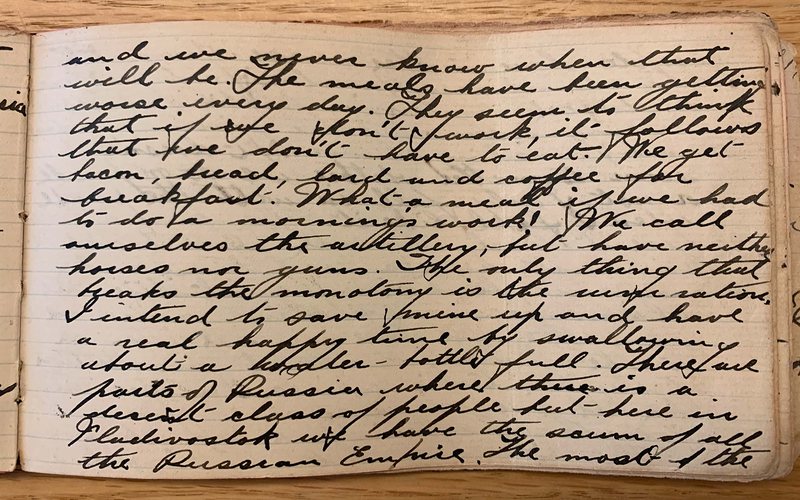 and we never know when that
will be. The meals have been getting
worse every day. They seem to think
that if we don't work, it follows
that we don't have to eat. We get
bacon, bread, lard and coffee for
breakfast. What a meal if we had
to do a morning's work! We call
ourselves the artillery, but have neither
horses nor guns. The only thing that
breaks the monotony is the rum ration.
I intend to save mine up and have
a real happy time by swallowing
about a water-bottle full. There are
parts of Russia where there is a
decent class of people but here in
Vladivostok we have the scum of all
the Russian Empire. The most of the